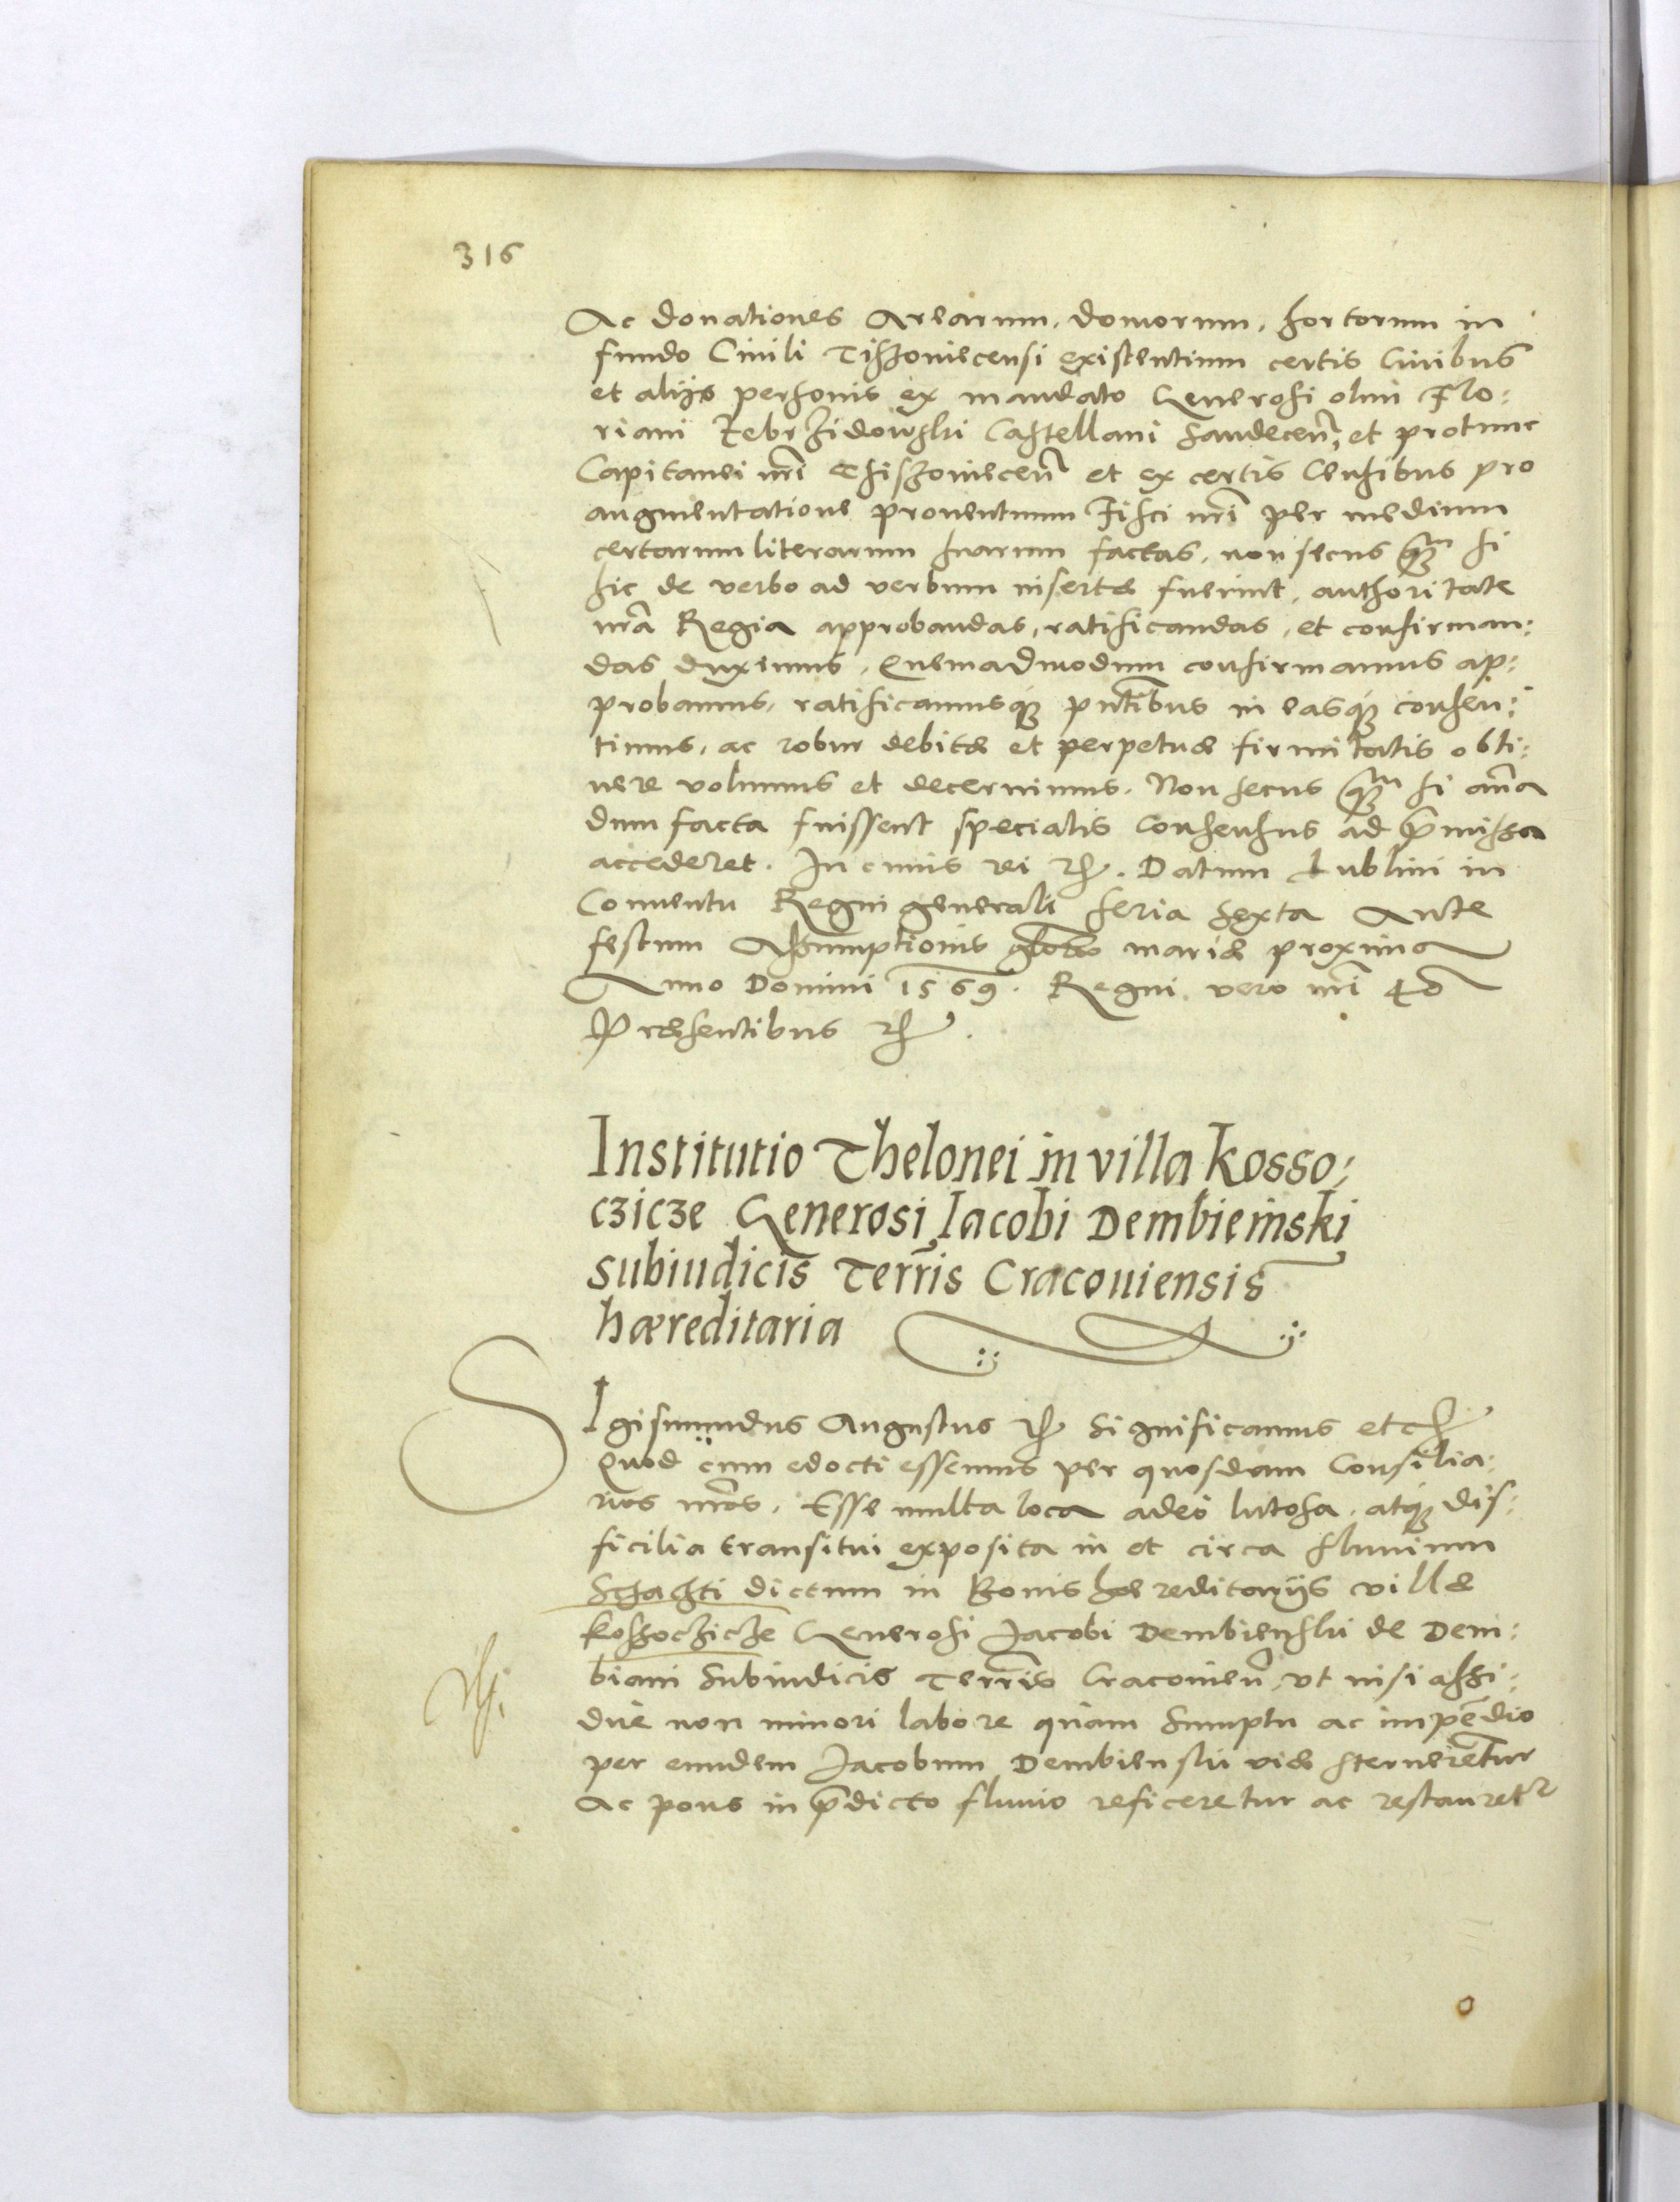 316
Ac donationes Arearum, domorum, hortorum in
fundo Civili Tiszoviecensi existentium certis Civibus
et alijs personis ex mandato Generosi olim Flo:
riani Zebrzidowski Castellani Sandecen̄, et protunc
Capitanei nr̄i Thiszoviecen̄ et ex certis Censibus pro
augmentatione proventuum Fisci nr̄i per medium
certarum literarum suarum factas, non secus quam si
hic de verbo ad verbum insertæ fuerint, authoritate
nr̄a Regia approbandas, ratificandas, et confirman:
das duximus, Quemadmodum confirmamus ap:
probamus, ratificamusq; pn̄tibus in easq; consen:
timus, ac robur debitæ et perpetuæ firmitatis obti:
nere volumus et decernimus. Non secus quam si
dum facta fuissent specialis consensus ad p̄missa
accederet. In cuius rei etc. Datum Lublini in
Conventu Regni generali feria sexta Ante
festum Assumptionis mariæ proxima
Anno Domini 1569. Regni vero nr̄i 40
Præsentibus etc.
Institutio Thelonei in villa Kosso:
czicze Generosi Iacobi Dembieinski
subiudicis Terrīs Cracouiensis
hæreditaria
SIgismundus Augustus etc significamus etc
Quod cum edocti essemus per quosdam Consilia:
rios nr̄os, Esse multa loca adeo lutosa, atq; dif:
ficilia transitui exposita in et circa fluvium
Schachti dictum in Bonis hæreditarijs villæ
Kossocziche Generosi Jacobi Dembienski de Dem:
biani Subiudicis Terrīs Cracovien̄, ut nisi assi:
due non minori labore quam sumptu ac impendio
per eundem Jacobum Dembienski viæ sternerentur
Ac pons in p̄dicto fluvio reficeretur ac restauretr